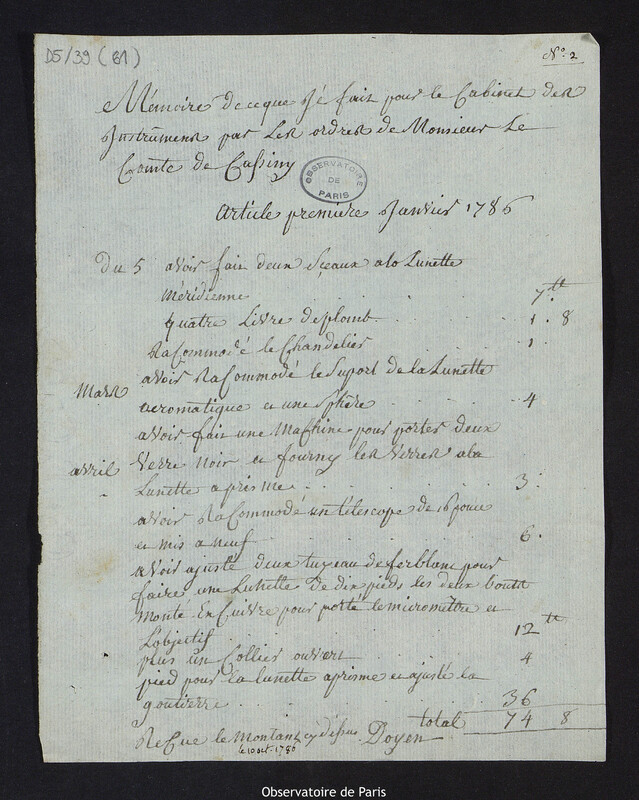 D5/39 (61)
N.º 2
Mémoire de ce que J'é fait pour le Cabinet des
Instrumens par Les ordres de Monsieur Le
Comte de Cassiny
OBSERVATOIRE
DE
PARIS
Article premiere Janvier 1786
Du 5 avoir fait deux Sçeaux a la Lunette
Méridienne . . . 7 tt
quatre Livre de plomb . . . 1 . 8
Racommodé le Chandelier . . . 1 .
Mars avoir Racommodé le Suport de la Lunette
acromatique et une Sphère . . . 4
avoir fait une Machine pour porter deux
avril Verre Noir et fourny les Verres a la
Lunette a prisme . . . 3 .
avoir Racommodé un télescope de 16 pouce
et mis a neuf . . . 6 .
avoir ajusté deux tuyeau de ferblanc pour
faire une Lunette de dix pieds les deux boutt
Monté En Cuivre pour porté le micromètre et
L'objectif . . . 12 tt
plus un Collier ouvert . . . 4
pied pour la lunette a prisme et ajusté la
goutierre . . . 36
total 74 8
Reçue le Montant cy dessus Doyen
le 10 oct. 1786
Observatoire de Paris